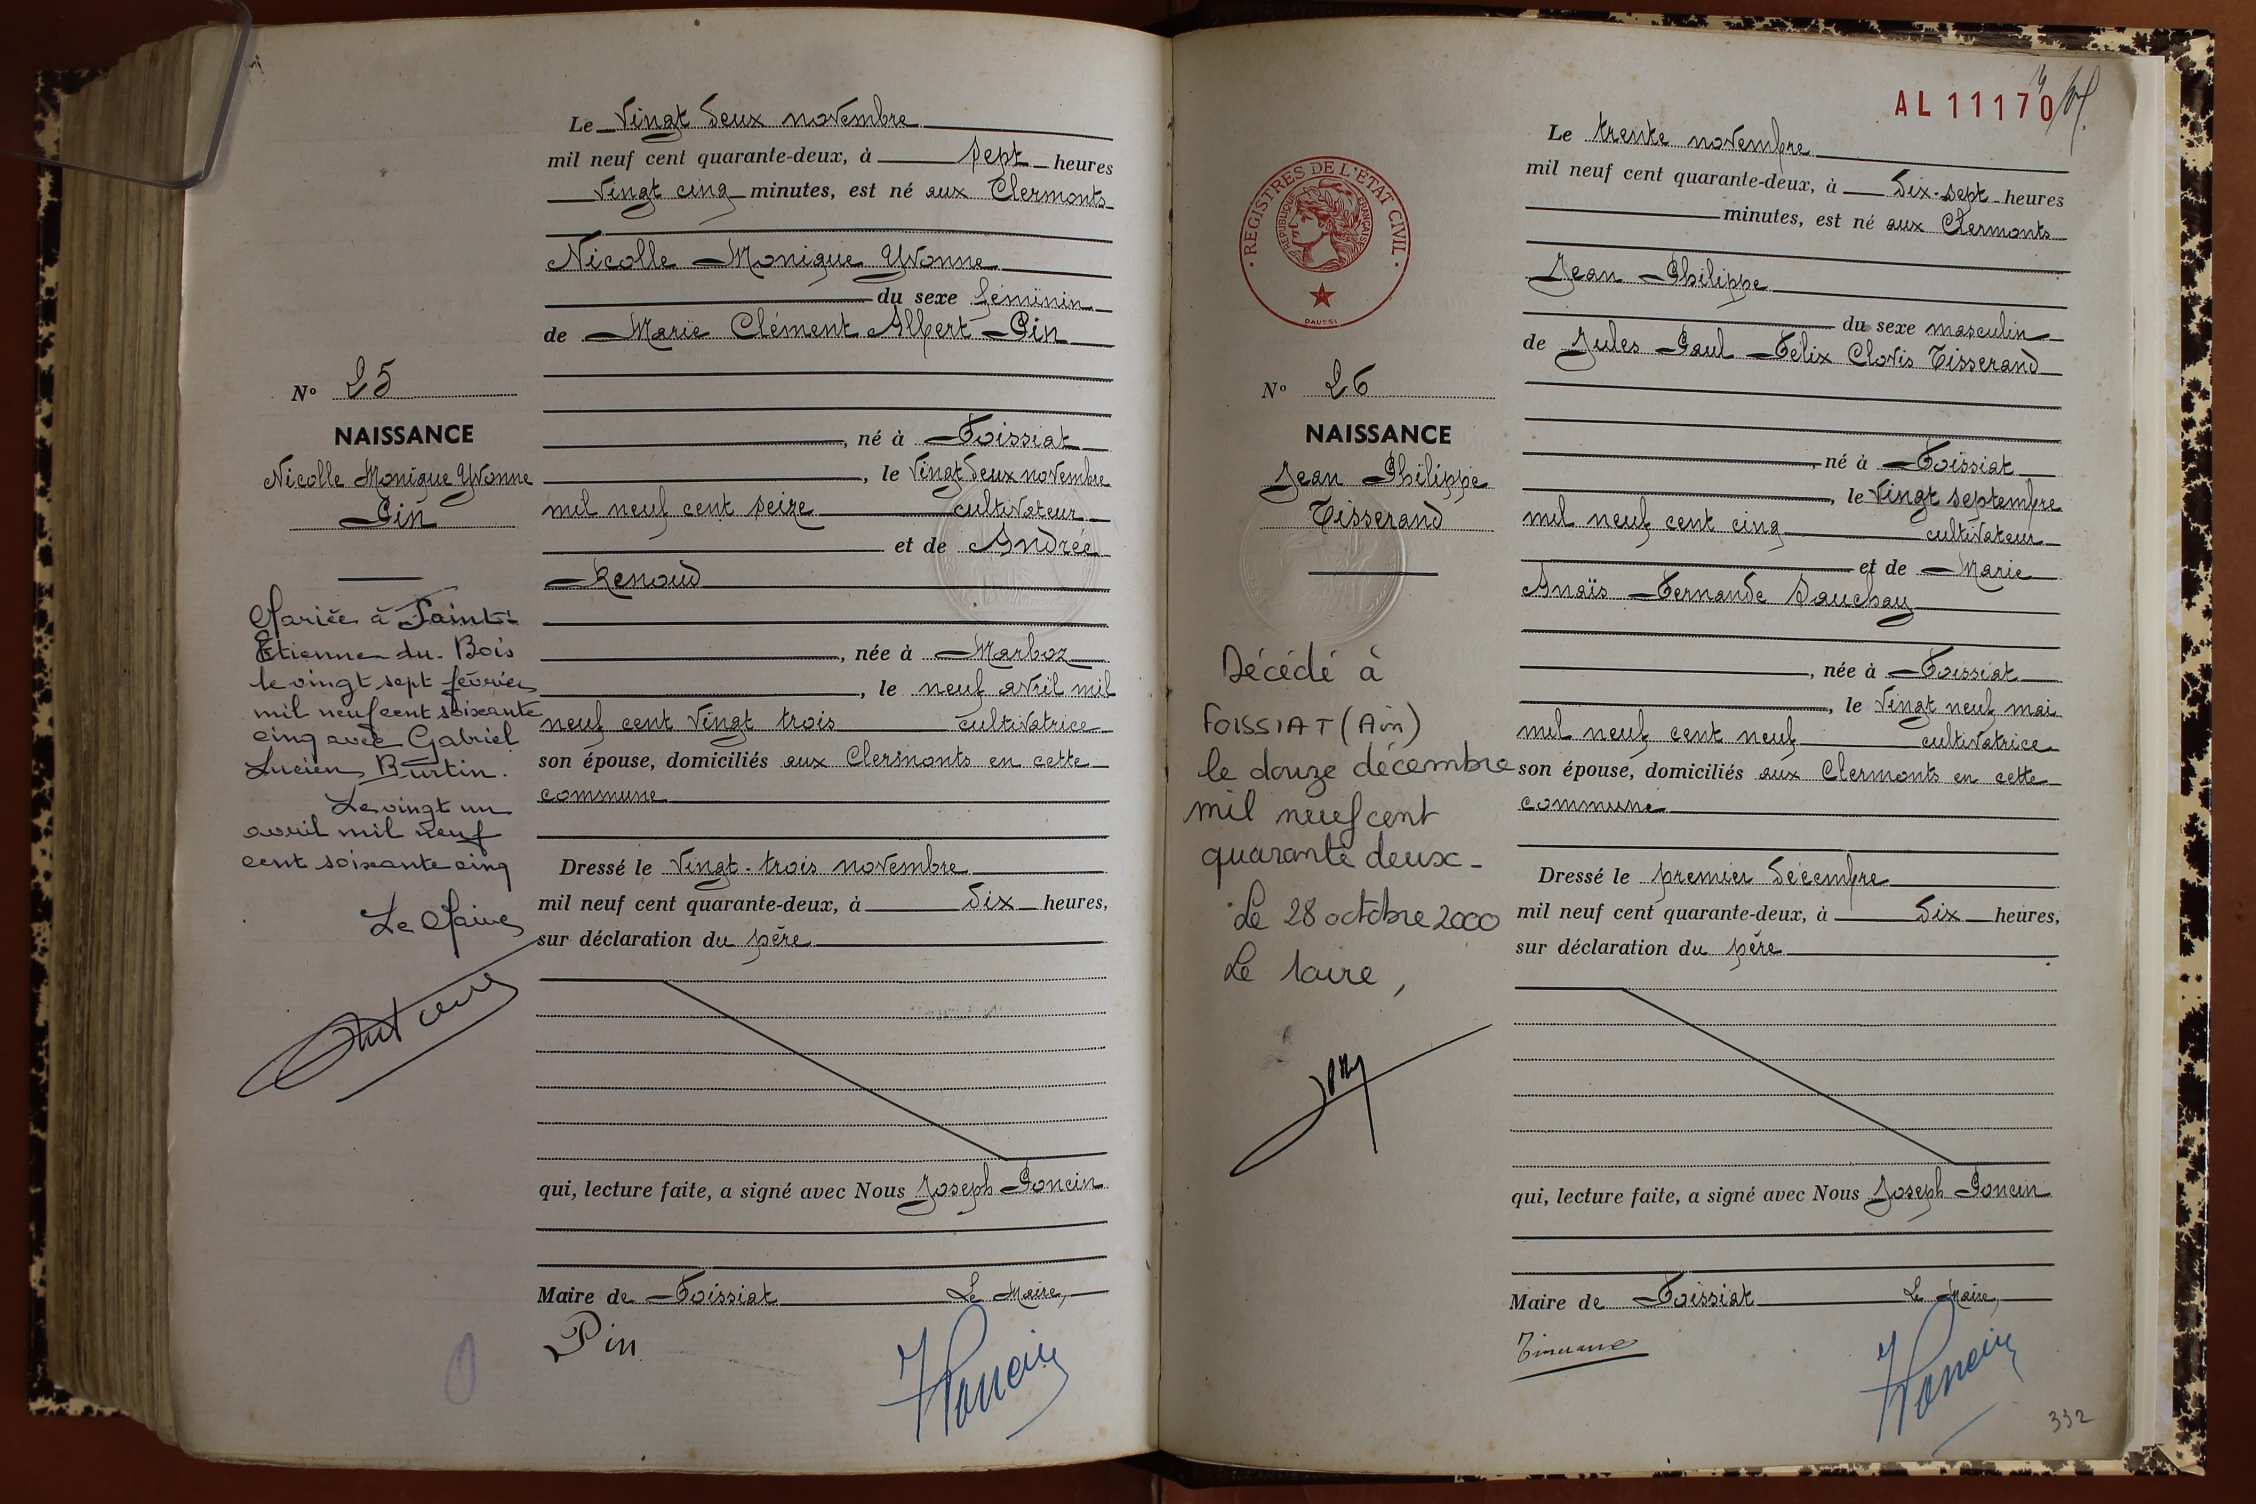 Le vingt deux novembre
mil neuf cent quarante-deux, à sept heures
vingt cinq minutes, est né aux Clermonts
Nicolle Monique Yvonne
du sexe féminin
de Marie Clément Albert Pin
N° 25
NAISSANCE
Nicolle Monique Yvonne
Pin
, né à Foissiat
, le vingt deux novembre
mil neuf cent seize cultivateur
et de Andrée
Renoud
, née à Marboz
, le neuf avril mil
neuf cent vingt trois cultivatrice
son épouse, domiciliés aux Clermonts en cette
commune
Mariée à Saint-
Etienne du Bois
le vingt sept février
mil neuf cent soixante
cinq avec Gabriel
Lucien Burtin.
Le vingt un
avril mil neuf
cent soixante cinq
Le Maire
Dressé le vingt-trois novembre
mil neuf cent quarante-deux, à dix heures,
sur déclaration du père
qui, lecture faite, a signé avec Nous Joseph Poncin
Maire de Foissiat Le Maire,
Pin
JPoncin
AL 11170
Le trente novembre
mil neuf cent quarante-deux, à dix-sept heures
minutes, est né aux Clermonts
Jean Philippe
du sexe masculin
de Jules Paul Félix Clovis Tisserand
REGISTRES DE L'ETAT CIVIL
REPUBLIQUE FRANÇAISE
DAUSSI
N° 26
NAISSANCE
Jean Philippe
Tisserand
, né à Foissiat
, le vingt septembre
mil neuf cent cinq cultivateur
et de Marie
Anaïs Fernande Sauchay
, née à Foissiat
, le vingt neuf mai
mil neuf cent neuf cultivatrice
son épouse, domiciliés aux Clermonts en cette
commune
Décédé à
FOISSIAT (Ain)
le douze décembre
mil neuf cent
quarante deux-
Le 28 octobre 2000
Le Maire,
Dressé le premier décembre
mil neuf cent quarante-deux, à dix heures,
sur déclaration du père
qui, lecture faite, a signé avec Nous Joseph Poncin
Maire de Foissiat Le Maire,
Tisserand
JPoncin
332